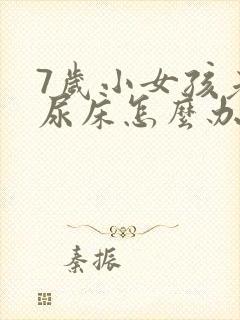 7歲小女孩
尿床怎麼办
秦振